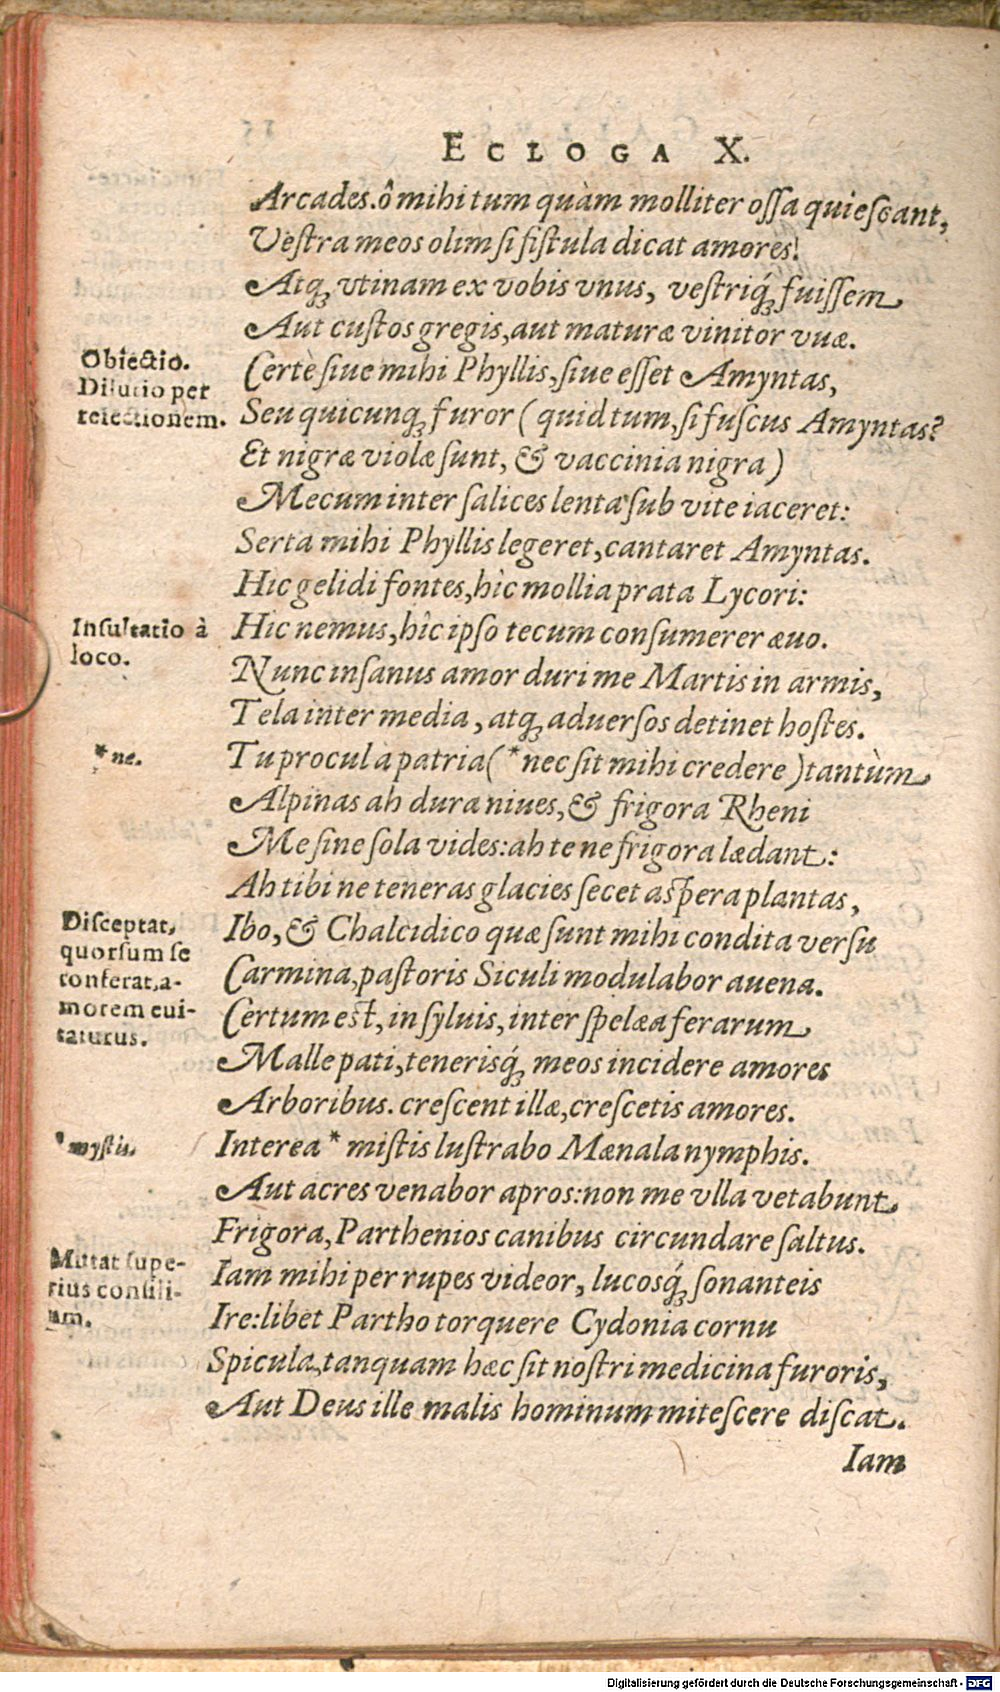 ECLOGA X.
Arcades. ô mihi tum quàm molliter ossa quiescant,
Vestra meos olim si fistula dicat amores!
Atq; vtinam ex vobis vnus, vestriq́; fuissem
Aut custos gregis, aut maturæ vinitor vuæ.
Obiectio.
Dilutio per
reiectionem.
Certè siue mihi Phyllis, siue esset Amyntas,
Seu quicunq; furor (quid tum, si fuscus Amyntas?
Et nigræ violæ sunt, & vaccinia nigra)
Mecum inter salices lenta sub vite iaceret:
Serta mihi Phyllis legeret, cantaret Amyntas.
Hic gelidi fontes, hîc mollia prata Lycori:
Insultatio à
loco.
Hic nemus, hîc ipso tecum consumerer æuo.
Nunc insanus amor duri me Martis in armis,
Tela inter media, atq; aduersos detinet hostes.
*ne.
Tu procul a patria (*nec sit mihi credere) tantùm
Alpinas ah dura niues, & frigora Rheni
Me sine sola vides: ah te ne frigora lædant:
Ah tibi ne teneras glacies secet aspera plantas,
Disceptat,
quorsum se
conferat, a-
morem eui-
taturus.
Ibo, & Chalcidico quæ sunt mihi condita versu
Carmina, pastoris Siculi modulabor auena.
Certum est, in syluis, inter spelæa ferarum
Malle pati, tenerisq́; meos incidere amores
Arboribus. crescent illæ, crescetis amores.
*mystis.
Interea *mistis lustrabo Mænala nymphis.
Aut acres venabor apros: non me vlla vetabunt
Frigora, Parthenios canibus circundare saltus.
Mutat supe-
rius consili-
um.
Iam mihi per rupes videor, lucosq́; sonanteis
Ire: libet Partho torquere Cydonia cornu
Spicula, tanquam hæc sit nostri medicina furoris,
Aut Deus ille malis hominum mitescere discat.
Iam
Digitalisierung gefördert durch die Deutsche Forschungsgemeinschaft - DFG